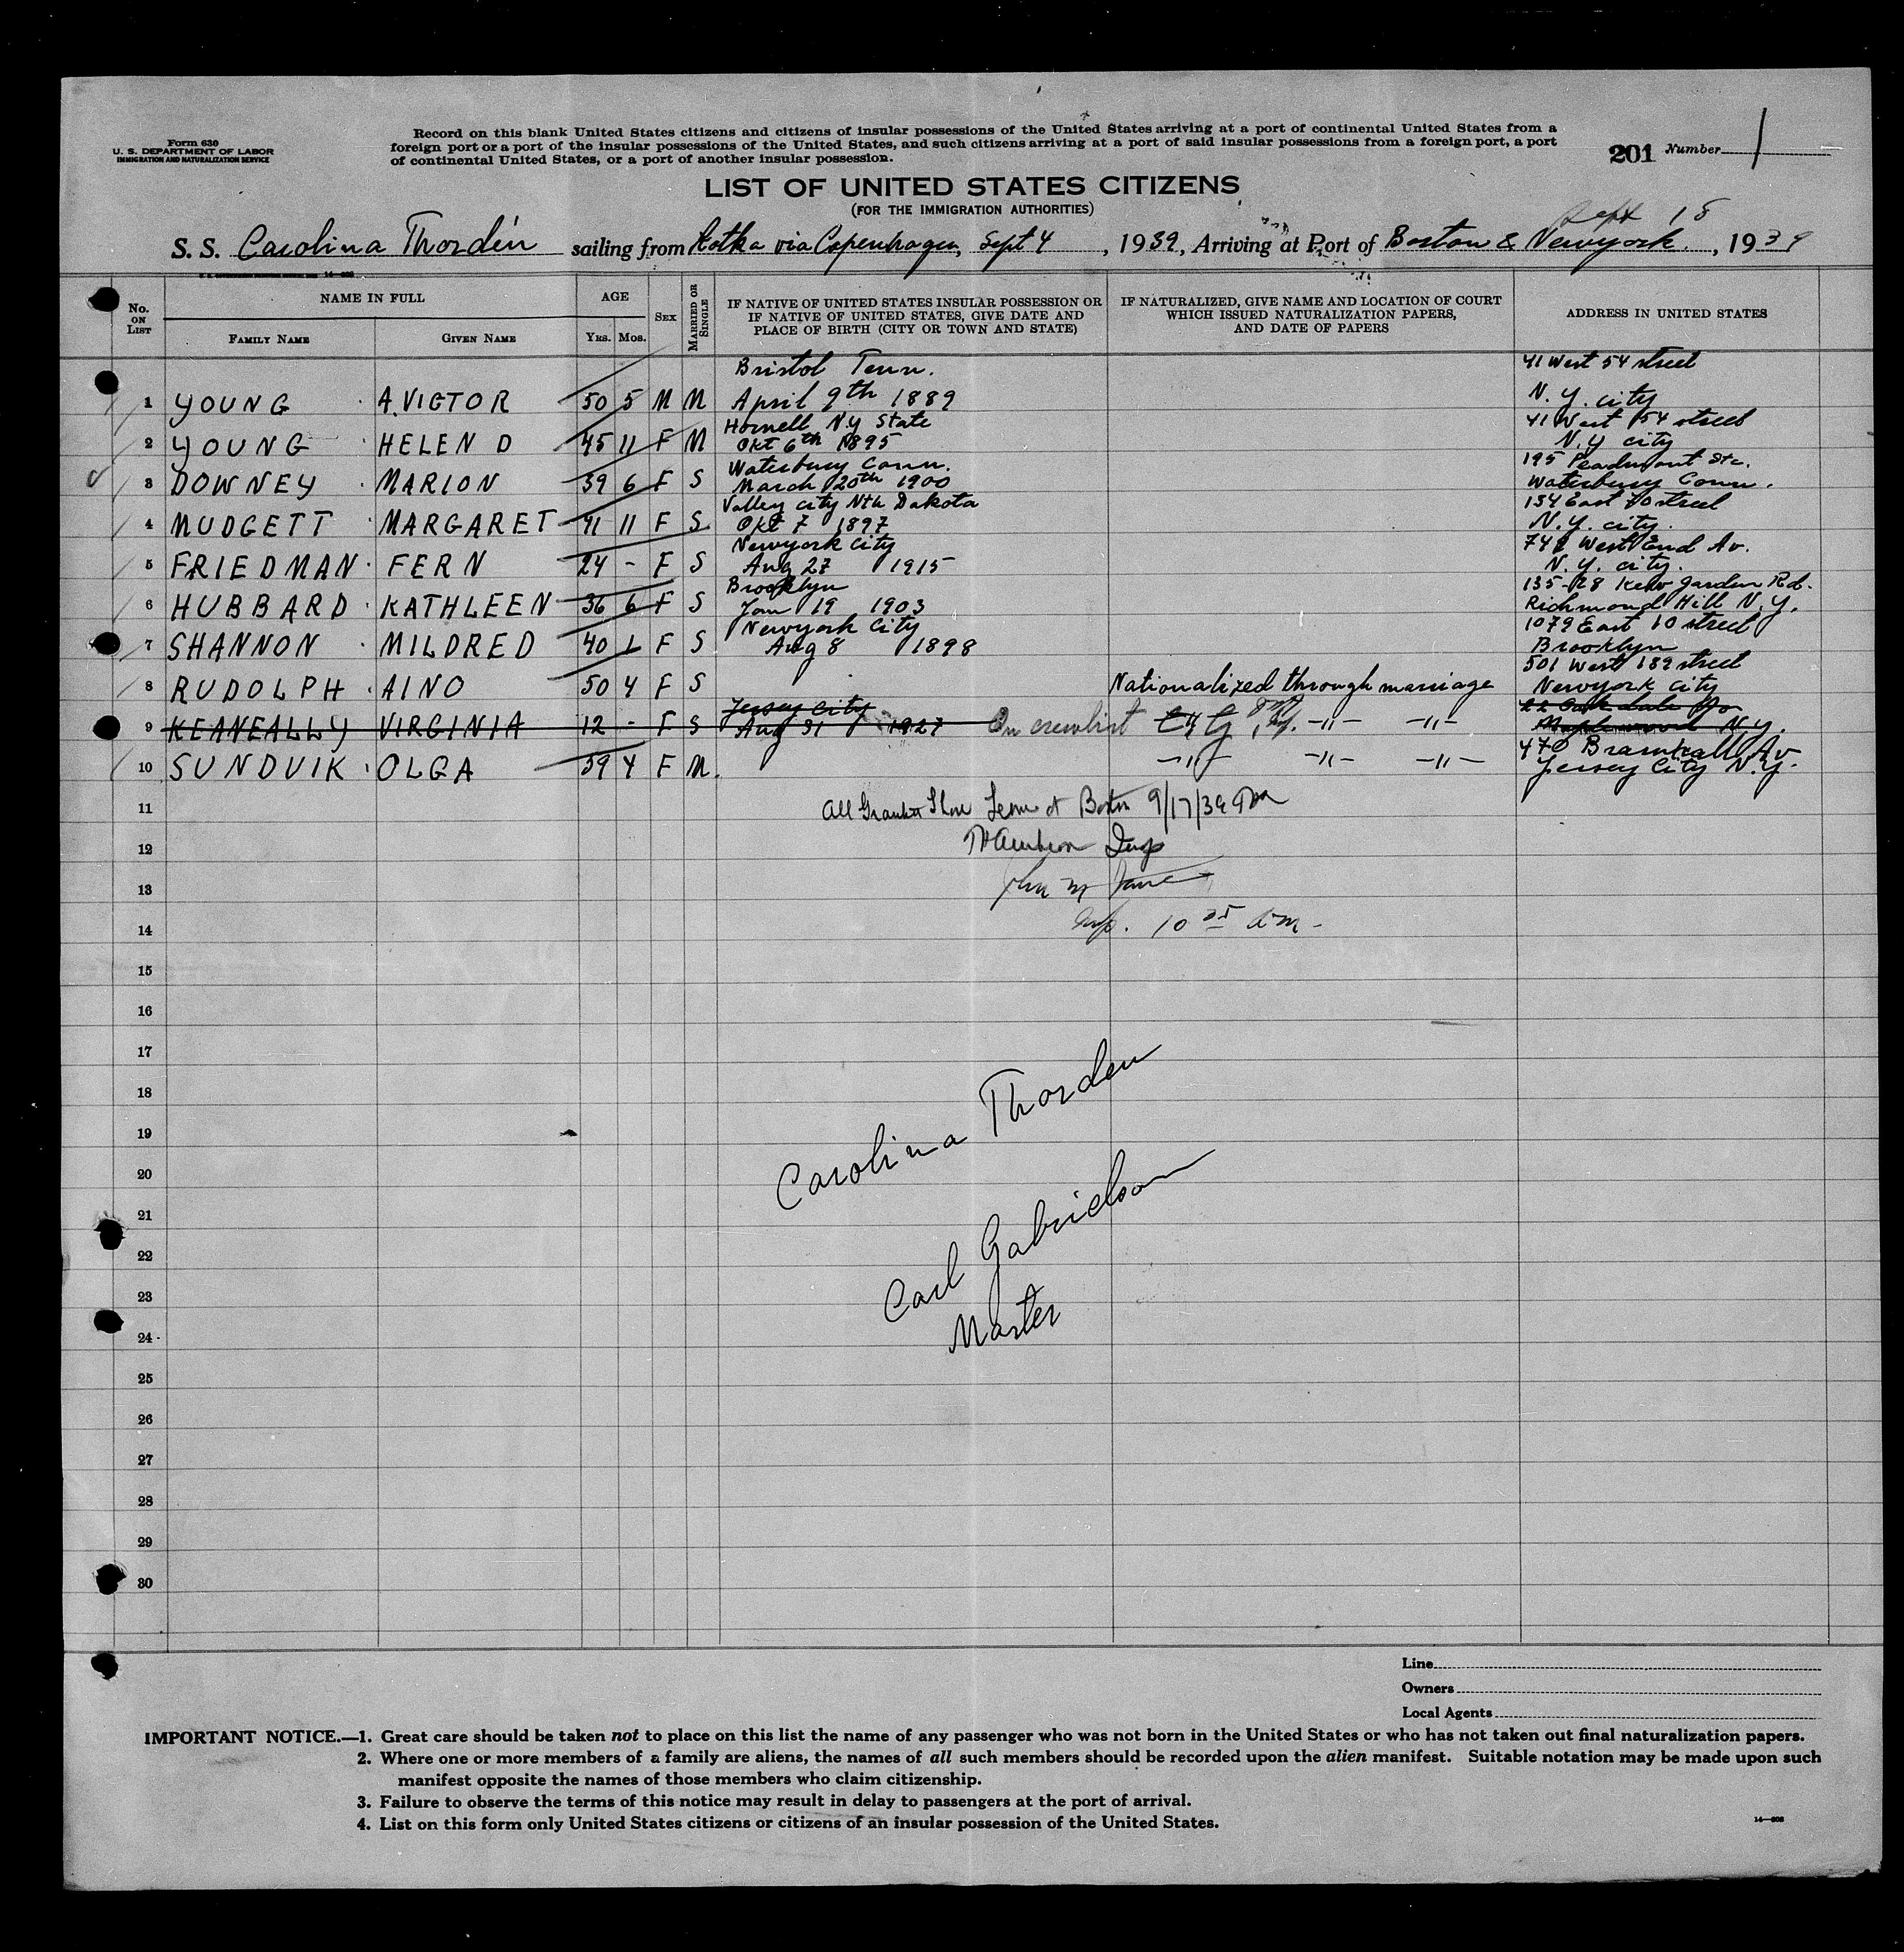 Form 630
U. S. DEPARTMENT OF LABOR
IMMIGRATION AND NATURALIZATION SERVICE
Record on this blank United States citizens and citizens of insular possessions of the United States arriving at a port of continental United States from a
foreign port or a port of the insular possessions of the United States, and such citizens arriving at a port of said insular possessions from a foreign port, a port
of continental United States, or a port of another insular possession.
201 Number 1
LIST OF UNITED STATES CITIZENS
(FOR THE IMMIGRATION AUTHORITIES)
Sept 18
S. S. Carolina Thordén sailing from Kotka via Copenhagen, Sept 4, 1939, Arriving at Port of Boston & Newyork, 1939
No. ON LIST
NAME IN FULL
FAMILY NAME
GIVEN NAME
AGE
YRS. MOS.
SEX
MARRIED OR SINGLE
IF NATIVE OF UNITED STATES INSULAR POSSESSION OR
IF NATIVE OF UNITED STATES, GIVE DATE AND
PLACE OF BIRTH (CITY OR TOWN AND STATE)
IF NATURALIZED, GIVE NAME AND LOCATION OF COURT
WHICH ISSUED NATURALIZATION PAPERS,
AND DATE OF PAPERS
ADDRESS IN UNITED STATES
Bristol Tenn. 41 West 54 street
1 YOUNG A. VICTOR 50 5 M M April 9th 1889 N.Y. city
Hornell N.Y State 41 West 54 street
2 YOUNG HELEN D 45 11 F M Okt 6th 1895 N.Y city
Waterbury Conn. 195
3 DOWNEY MARION 39 6 F S March 20th 1900 Waterbury Conn.
Valley city Nth Dakota 154 East 70 street
4 MUDGETT MARGARET 41 11 F S Okt 7 1897 N.Y. city.
Newyork City 741 West End Av.
5 FRIEDMAN FERN 24 - F S Aug 27 1915 N.Y. city.
Brooklyn 135-28 Kew garden Rd.
6 HUBBARD KATHLEEN 36 6 F S Jan 19 1903 Richmond Hill N.Y.
Newyork City 1079 East 10 street
7 SHANNON MILDRED 40 1 F S Aug 8 1898 Brooklyn
501 West 189 street
8 RUDOLPH AINO 50 4 F S Nationalized through marriage Newyork city
Jersey City 22 Oakdale
9 KEANEALLY VIRGINIA 12 - F S Aug 31 1927 On crewlist -"- -"- Maplewood N.Y.
470 Bramhall Av
10 SUNDVIK OLGA 59 4 F M. -"- -"- -"- Jersey City N.Y.
11 All Granted Shore Leave at Boston 9/17/39
12 Insp
13
14 Insp. 10 35 am -
15
16
17
18
Carolina Thorden
19
20
21
22
Carl Gabrielson
23
Master
24
25
26
27
28
29
30
Line
Owners
Local Agents
IMPORTANT NOTICE.—1. Great care should be taken not to place on this list the name of any passenger who was not born in the United States or who has not taken out final naturalization papers.
2. Where one or more members of a family are aliens, the names of all such members should be recorded upon the alien manifest. Suitable notation may be made upon such
manifest opposite the names of those members who claim citizenship.
3. Failure to observe the terms of this notice may result in delay to passengers at the port of arrival.
4. List on this form only United States citizens or citizens of an insular possession of the United States.